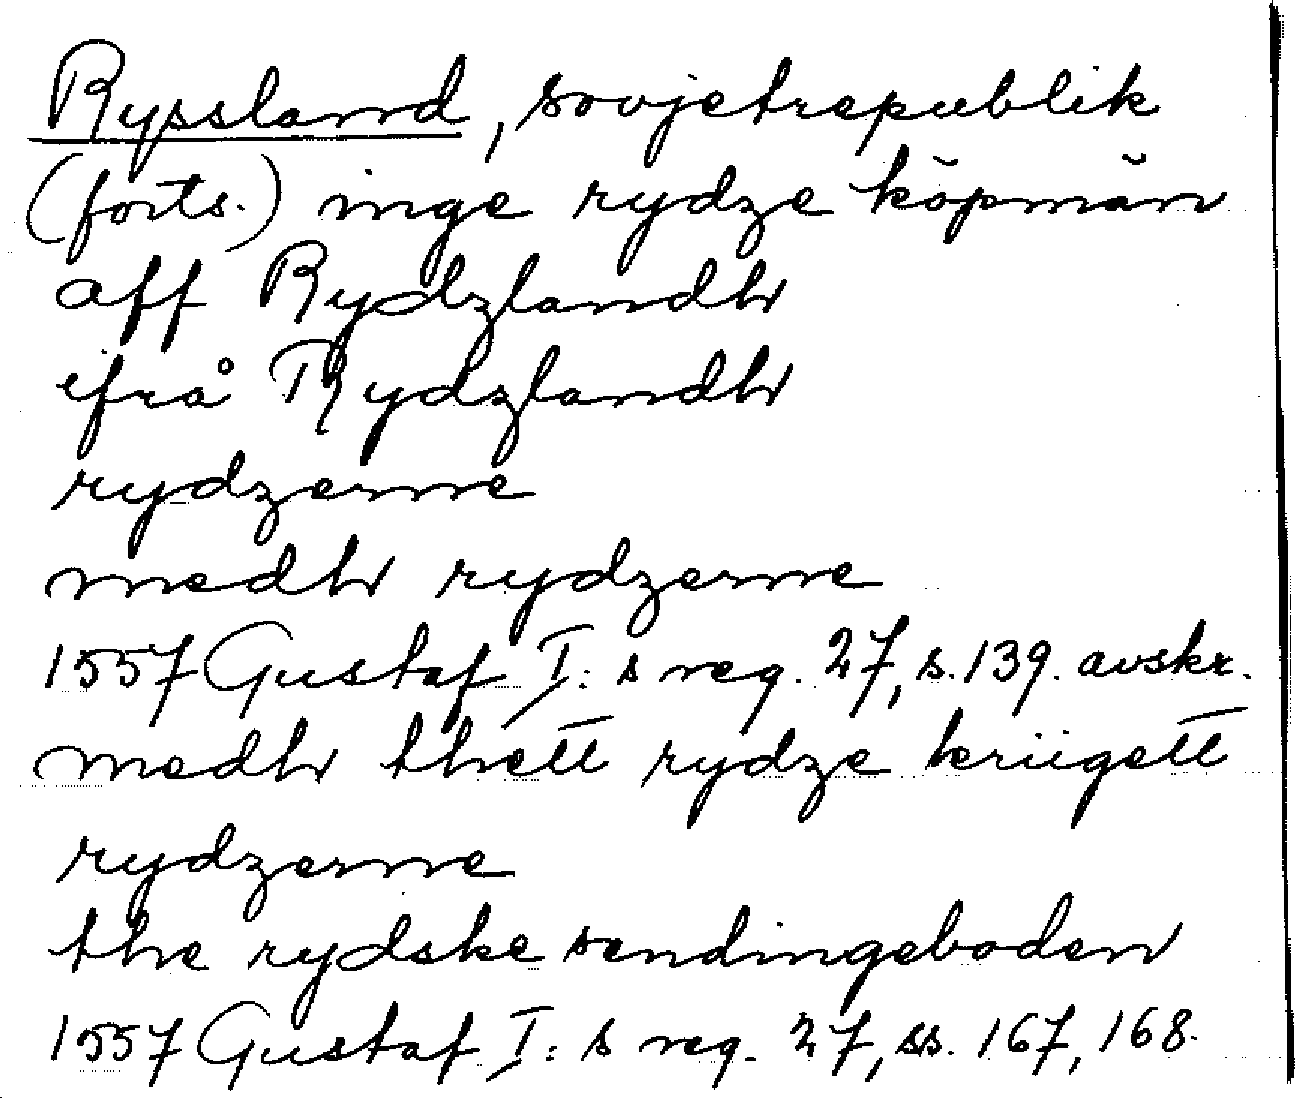 Ryssland, sovjetrepublik
(forts.) inge rydze köpmän
aff Rydzlandh
ifrå Rydzlandh
rydzerne
medh rydzerne
1557 Gustaf I:s reg. 27, s. 139. avskr.
medh thett rydze kriigett
rydzerne
the rydske sendingeboden
1557 Gustaf I:s reg. 27, ss. 167, 168.